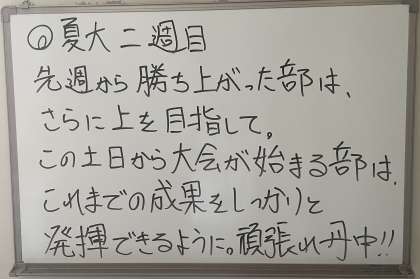 ◎夏大二週目
先週から勝ち上がった部は、
さらに上を目指して。
この土日から大会が始まる部は、
これまでの成果をしっかりと
発揮できるように。頑張れ丹中!!